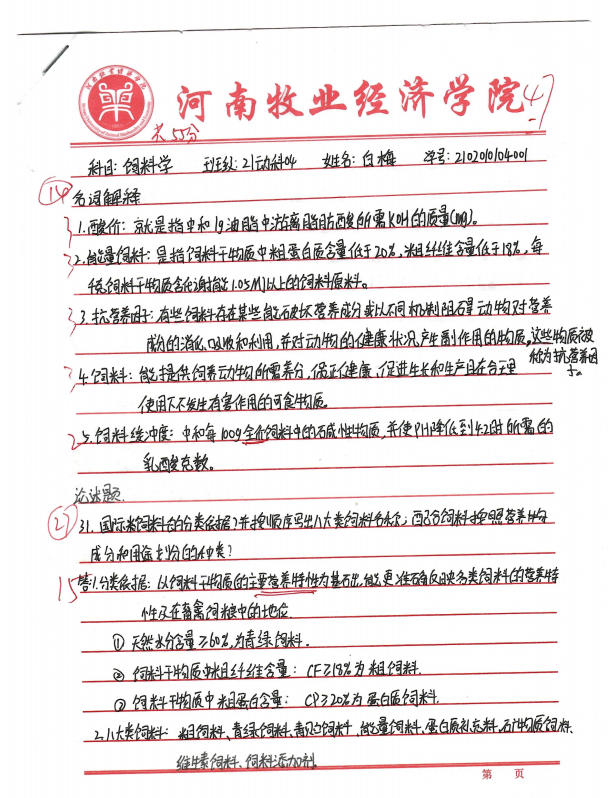 河南牧业经济学院
47
共55分
科目: 饲料学 班级: 21动科04 姓名: 白梅 学号: 2102010104001
14
名词解释
3 1. 酸价: 就是指中和1g油脂中游离脂肪酸所需KOH的质量(mg)。
3 2. 能量饲料: 是指饲料干物质中粗蛋白质含量低于20%, 粗纤维含量低于18%, 每
千克饲料干物质含代谢能1.05MJ以上的饲料原料。
3 3. 抗营养因子: 有些饲料存在某些能破坏营养成分或以不同机制阻碍动物对营养
成分的消化、吸收和利用, 并对动物的健康状况产生副作用的物质, 这些物质被
称为抗营养因
子。
3 4. 饲料: 能够提供饲养动物所需养分, 保证健康, 促进生长和生产且在合理
使用下不发生有害作用的可食物质。
2 5. 饲料缓冲度: 中和每100g全价饲料中的碱性物质, 并使PH降低到4.2时所需的
乳酸克数。
论述题
31. 国际饲料的分类依据? 并按顺序写出八大类饲料名称; 配合饲料按照营养
成分和用途划分的种类?
15 答: 1. 分类依据: 以饲料干物质的主要营养特性为基础, 能更准确反映各类饲料的营养特
性及在畜禽饲粮中的地位
① 天然水分含量≥60%, 为青绿饲料.
② 饲料干物质中粗纤维含量: CF≥18%为粗饲料.
③ 饲料干物质中粗蛋白含量: CP≥20%为蛋白质饲料.
2. 八大类饲料: 粗饲料、青绿饲料、青贮饲料、能量饲料、蛋白质补充料、矿物质饲料、
维生素饲料、饲料添加剂
第 页